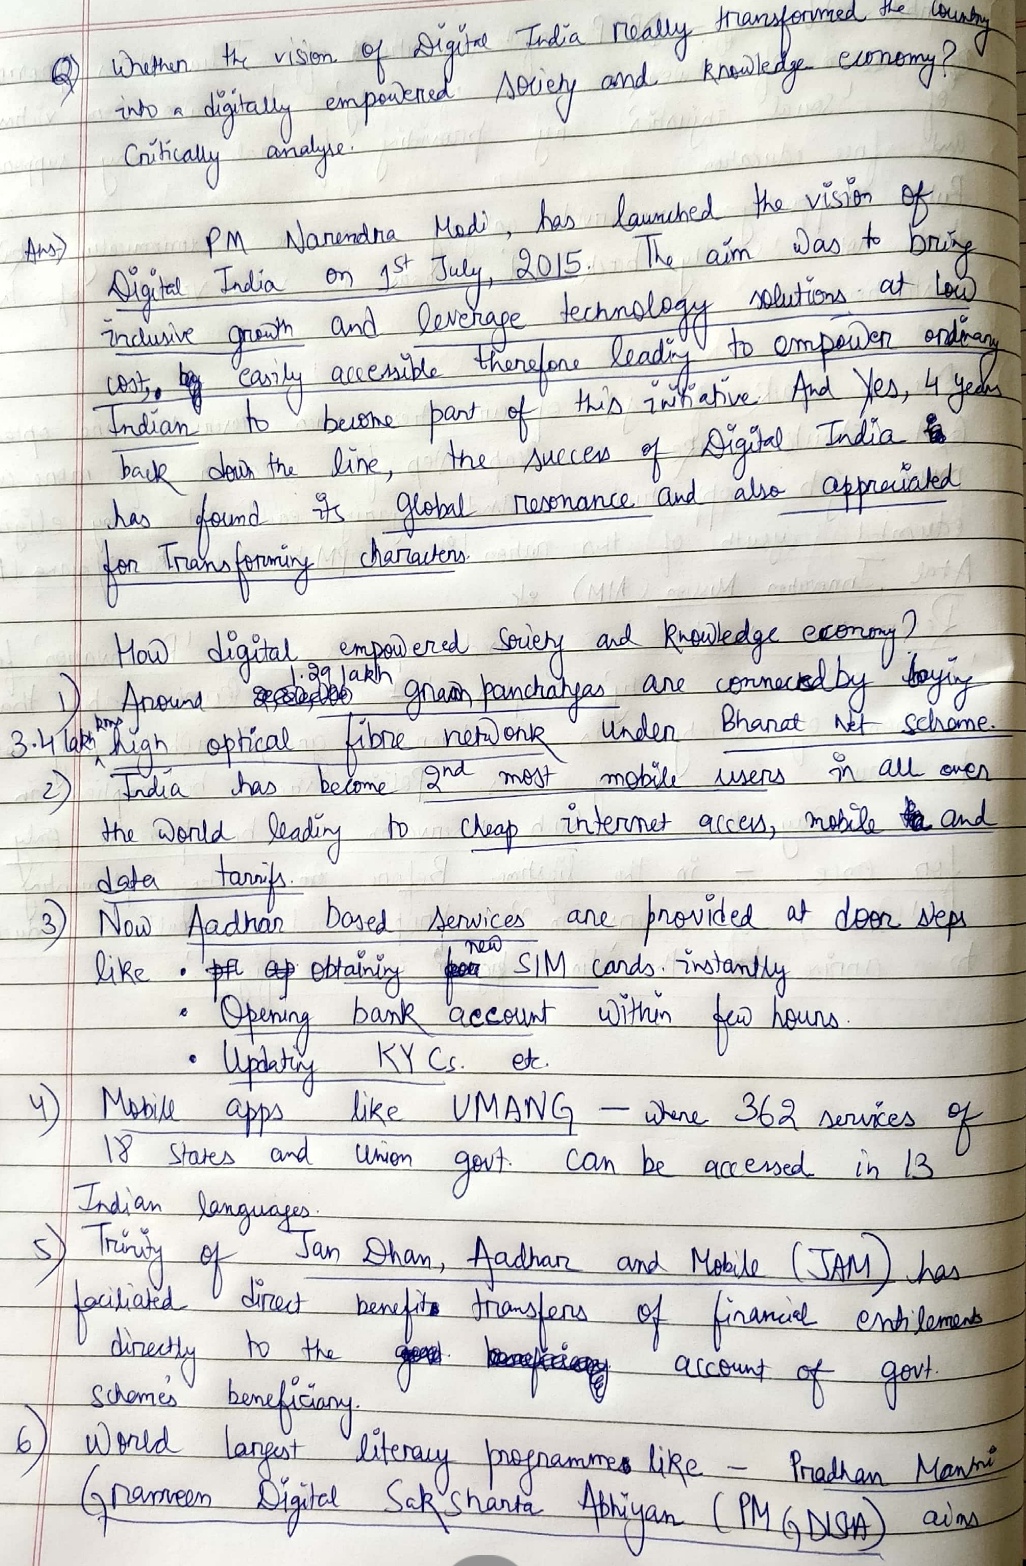 Q) Whether the vision of Digital India really transformed the country
into a digitally empowered society and knowledge economy?
Critically analyse.
Ans) PM Narendra Modi, has launched the vision of
Digital India on 1st July, 2015. The aim was to bring
inclusive growth and leverage technology solutions at low
cost, easily accessible therefore leading to empower ordinary
Indian to become part of this initiative. And Yes, 4 years
back down the line, the success of Digital India
has found its global resonance and also appreciated
for Transforming characters.
How digital empowered society and knowledge economy?
1) Around 1.29 lakh gram panchatyas are connected by laying
3.4 lakh kms high optical fibre network under Bharat Net scheme.
2) India has become 2nd most mobile users in all over
the world leading to cheap internet access, mobile and
data tarrifs.
3) Now Aadhar based services are provided at door steps
like • obtaining new SIM cards. instantly
• Opening bank account within few hours.
• Updating KYCs. etc.
4) Mobile apps like UMANG — where 362 services of
18 states and union govt. can be accessed in 13
Indian languages.
5) Trinity of Jan Dhan, Aadhar and Mobile (JAM) has
faciliated direct benefits transfers of financial entilements
directly to the account of govt.
scheme's beneficiary.
6) World largest literacy programmes like — Pradhan Mantri
Grameen Digital Saksharta Abhiyan (PMGDISHA) aims